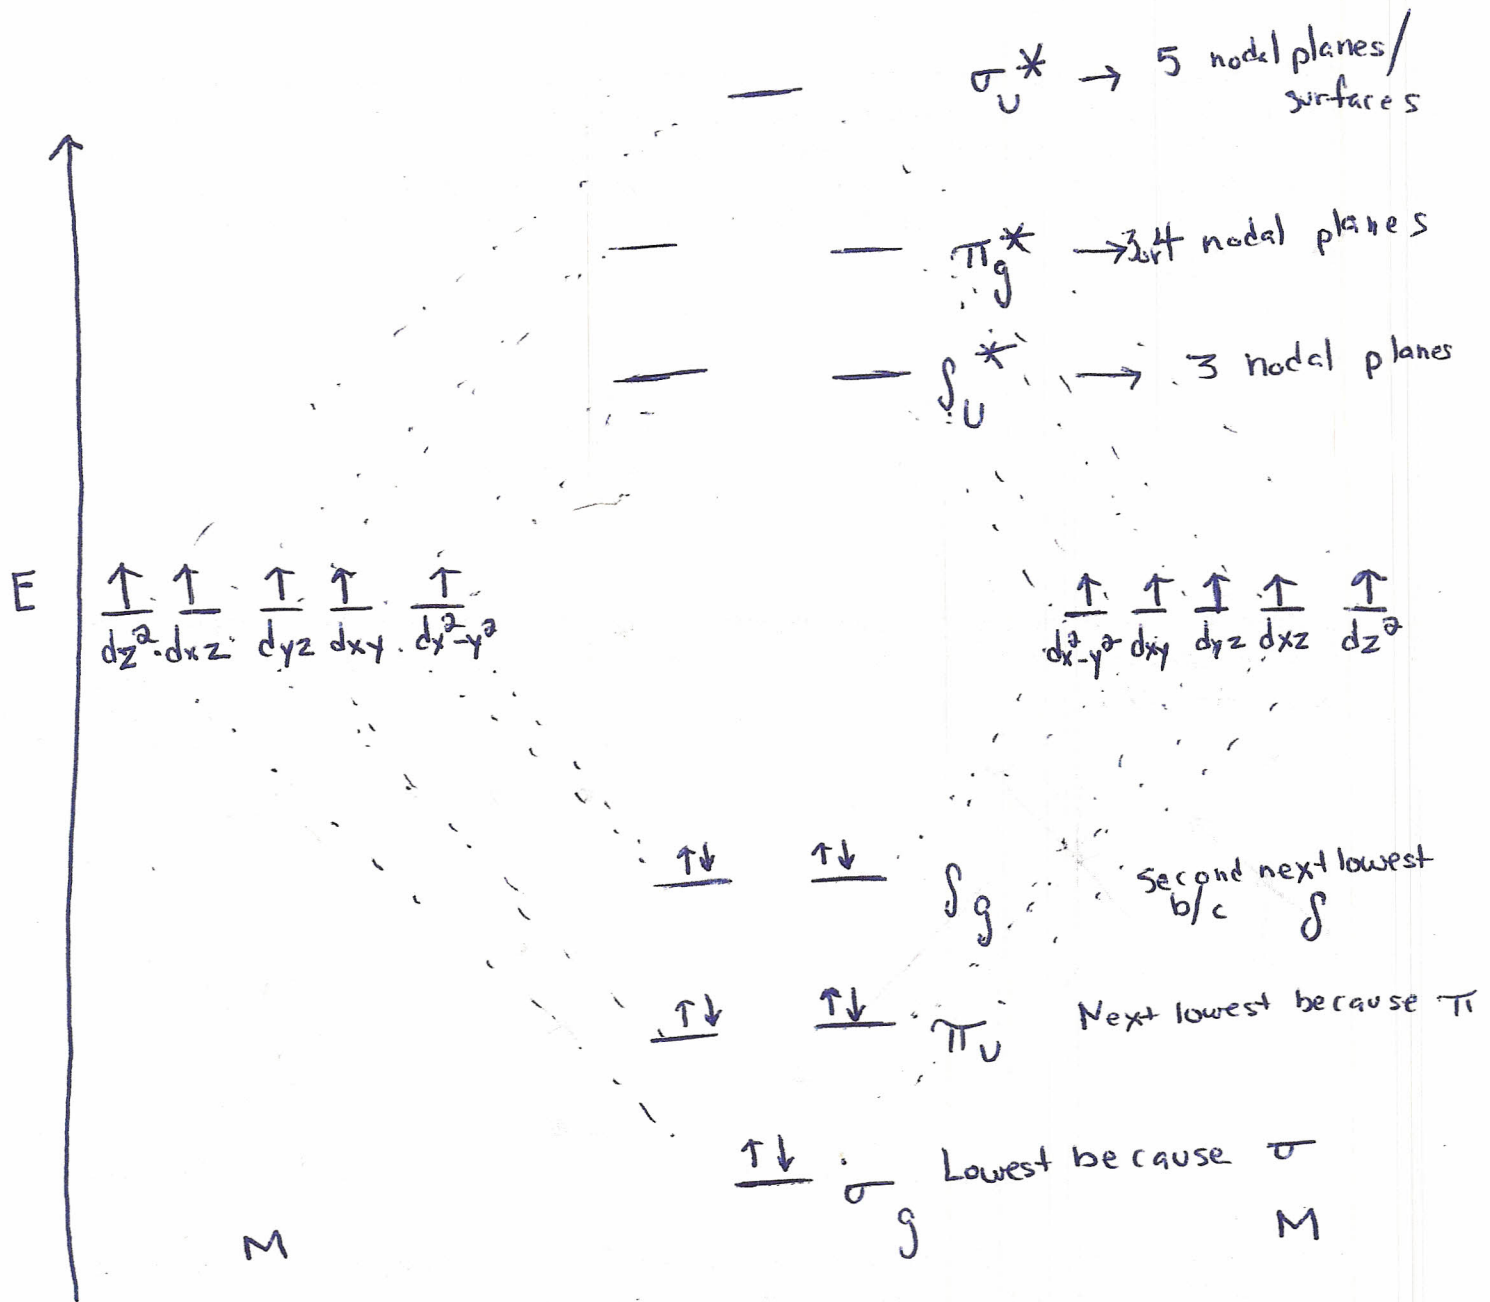 σ_u* → 5 nodal planes/
surfaces
π_g* → nodal planes
δ_u* → 3 nodal planes
E
↑ ↑ ↑ ↑ ↑
dz² dxz dyz dxy dx²-y²
↑ ↑ ↑ ↑ ↑
dx²-y² dxy dyz dxz dz²
↑↓ ↑↓ δ_g Second next lowest
b/c δ
↑↓ ↑↓ π_u Next lowest because π
↑↓ σ_g Lowest because σ
M M